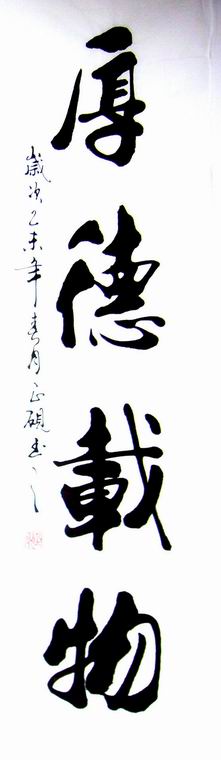 厚德載物
歲次乙未年春月正硯書